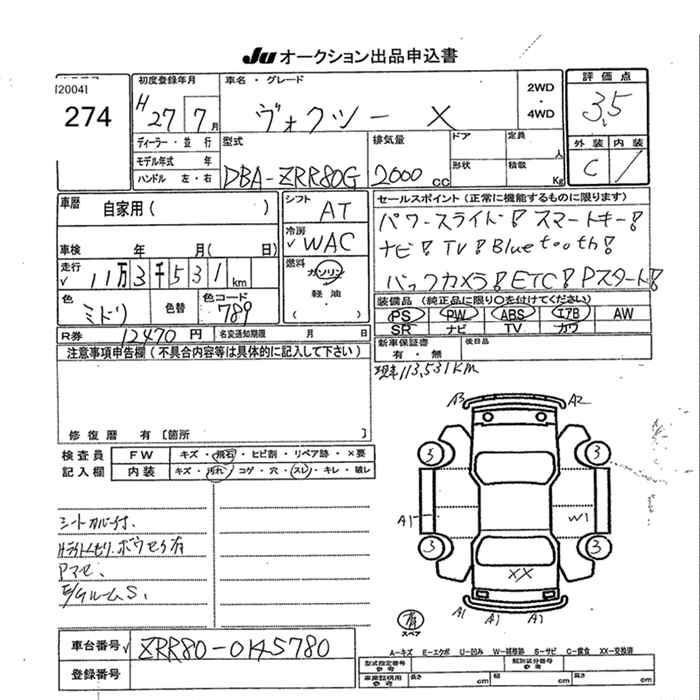 JU オークション出品申込書
[2004]
274
初度登録年月
H 27 7 月
車名・グレード
ヴォクシー X
2WD
・
4WD
評価点
3.5
ディーラー・並行
モデル年式 年
ハンドル 左・右
型式
DBA-ZRR80G
排気量
2000 cc
ドア
形状
定員
人
積載
Kg
外装 内装
C
車歴
自家用( )
シフト
AT
セールスポイント(正常に機能するものに限ります)
パワースライド! スマートキー!
ナビ! TV! Bluetooth!
バックカメラ! ETC! Pスタート!
車検 年 月( 日)
冷房
√ WAC
走行
√ 11万3千531 km
燃料
ガソリン
・
軽油
・
( )
色
ミドリ
色替
色コード
789
装備品(純正品に限り○を付けてください)
PS PW ABS エアB AW
SR ナビ TV カワ
R券 12470 円
名変通知期限 月 日
新車保証書
有・無
後日品
注意事項申告欄(不具合内容等は具体的に記入して下さい)
現車113,531KM
修復歴 有〔箇所 〕
検査員
記入欄
FW キズ・飛石・ヒビ割・リペア跡・×要
内装 キズ・汚れ・コゲ・穴・スレ・キレ・破レ
A3 A2
3 3
A1 W1
3 3
XX
A1 A1 A1
有
スペア
シートカバー付.
Pマセ.
車台番号 √ ZRR80-0145780
登録番号
A―キズ E―エクボ U―凹み W―補修跡 S―サビ C―腐食 XX―交換済
型式指定番号
参考
類別区分番号
参考
車庫証明用
参考
長さ cm 幅 cm 高さ cm